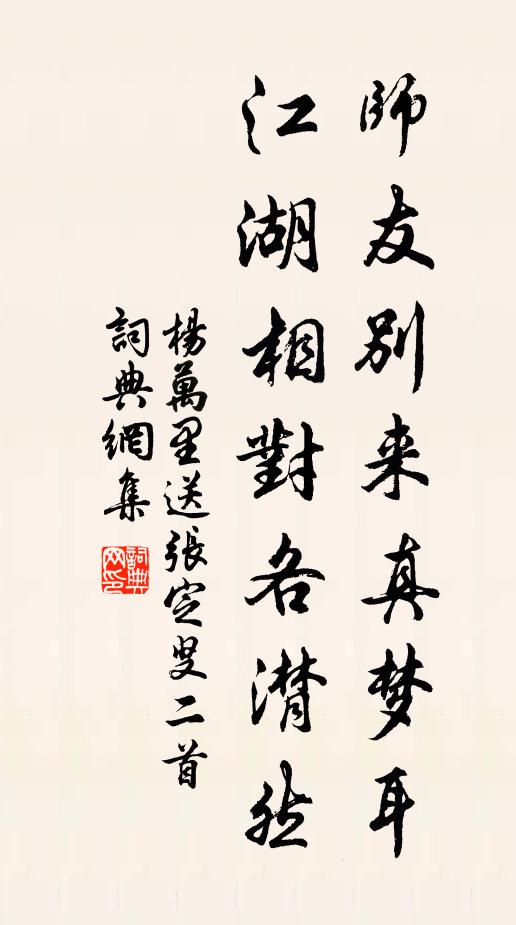 師友別来真梦耳
江湖相對各潸然
楊萬里送張定叟二首
詞典網集
詞典网印